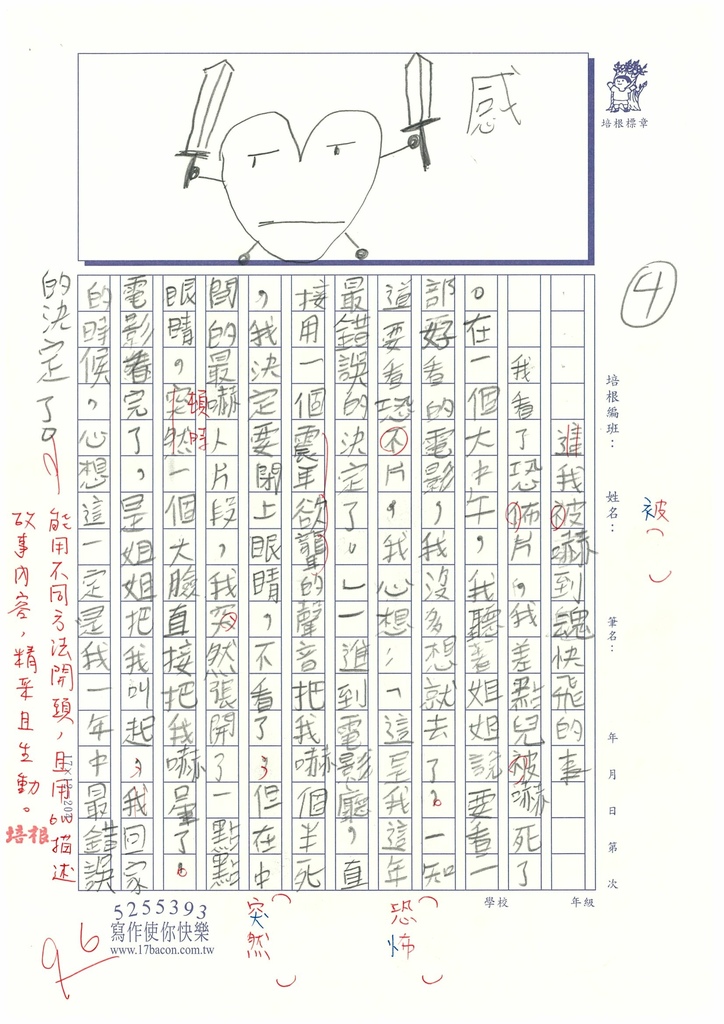 感
培根標章
4
培根編班：
姓名：
筆名：
年 月 日 第 次
學校
年級
被（ ）
進我被嚇到魂快飛的事
我看了恐怖片，我差點兒被嚇死了
。在一個大中午，我聽著姐姐說要看一
部好看的電影，我沒多想就去了。一知
道要看恐不片，我心想：「這是我這年
最錯誤的決定了。」一進到電影廳，直
接用一個震耳欲聾的聲音把我嚇個半死
，我決定要閉上眼睛，不看了，但在中
間的最嚇人片段，我突然張開了一點點
眼睛。突然一個大臉直接把我嚇暈了。
頓時
電影看完了，是姐姐把我叫起，我回家
的時候，心想這一定是我一年中最錯誤
的決定了。
能用不同方法開頭，且用的描述
故事內容，精采且生動。
培根
（恐怖 ）
（突然 ）
5255393
寫作使你快樂
www.17bacon.com.tw
96